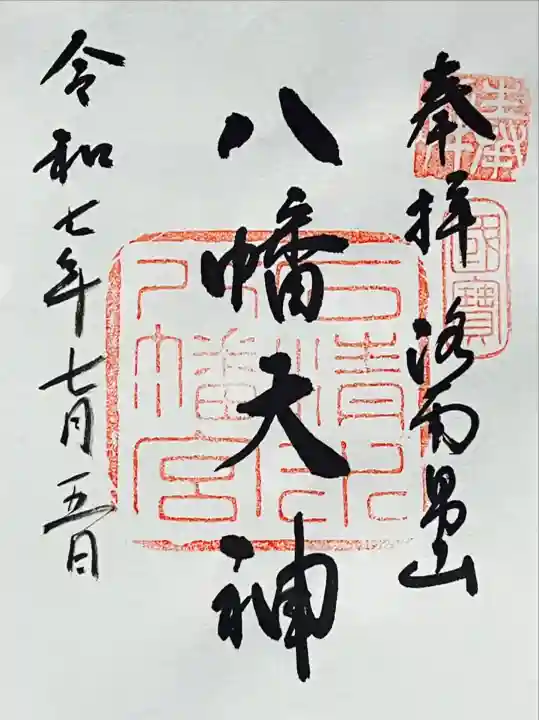 奉拝 洛南男山
國寶
八幡天神
石清水八幡宮
令和七年七月五日